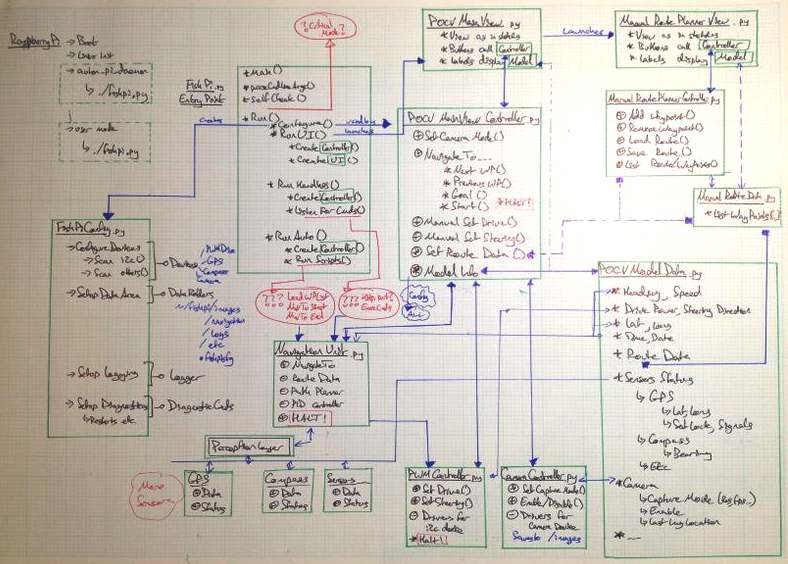 Raspberry Pi → Boot
→ User List
→ auto-pi-daemon
↳ ./fishpi.py
→ user mode
↳ ./fishpi.py
Fish Pi.py
Entry Point
creates
?? Critical Mode?
* Main()
* Self Check()
* Run()
* Configure()
* Run UI()
* Create Controller()
* Create UI()
* Run Headless()
* Create Controller()
* Listen For Cmds()
* Run Auto()
* Create Controller()
* Run Scripts()
launches
POCV MainView.py
* View as in states
* Buttons call Controller
* Labels display Model
Launches
Manual Route Planner View.py
* View as in states
* Buttons call Controller
* Labels display Model
POCV MainView Controller.py
⊕ Set Camera Mode()
⊕ Navigate To...
* Next WP()
* Previous WP()
* Goal()
* Start() * HALT!
⊕ Manual Set Drive()
⊕ Manual Set Steering()
⊕ Set Route Data()
⊗ Model Info
Manual Route Planner Controller.py
⊕ Add Waypoint()
⊕ Remove Waypoint()
⊕ Load Route()
⊕ Save Route()
⊕ List Route Waypoints()
Manual Route Data.py
* List Way Points[]
FishPiConfig.py
→ Configure Devices
→ Scan i2c()
→ Scan others()
→ Setup Data Area
→ Setup Logging
→ Setup Diagnostics
↳ Restarts etc
Devices
/ PWM Drive
/ GPS
/ Compass
Camera
Data Folders
~/fishpi/images
/navigation
/logs
/etc
Logger
Diagnostic Cmds
??? Load WP List
Mv To Start
Mv To End
???
Exec Cmds
Config
Navigation Unit.py
⊕ Navigate To
⊕ Route Data
⊖ Path Planner
⊖ PID Controller
⊖ HALT!
Perception Layer
More Sensors
GPS
⊕ Data
⊕ Status
Compass
⊕ Data
⊕ Status
Sensors...
⊕ Data
⊕ Status
PWM Controller.py
⊕ Set Drive()
⊕ Set Steering()
⊖ Drivers for
i2c device
* HALT!
Camera Controller.py
⊕ Set Capture Mode()
⊕ Enable/Disable()
⊖ Drivers for
Camera Device
Saves to /images
POCV Model Data.py
* Heading, Speed
* Drive Power, Steering Direction
* Lat, Long
* Time, Date
* Route Data
* Sensors Status
↳ GPS
↳ Lat, Long
↳ Sat Lock, Signals
↳ Compass
↳ Bearing
↳ Etc
* Camera
↳ Capture Mode
↳ Enable
↳ Last Img Location
* ...